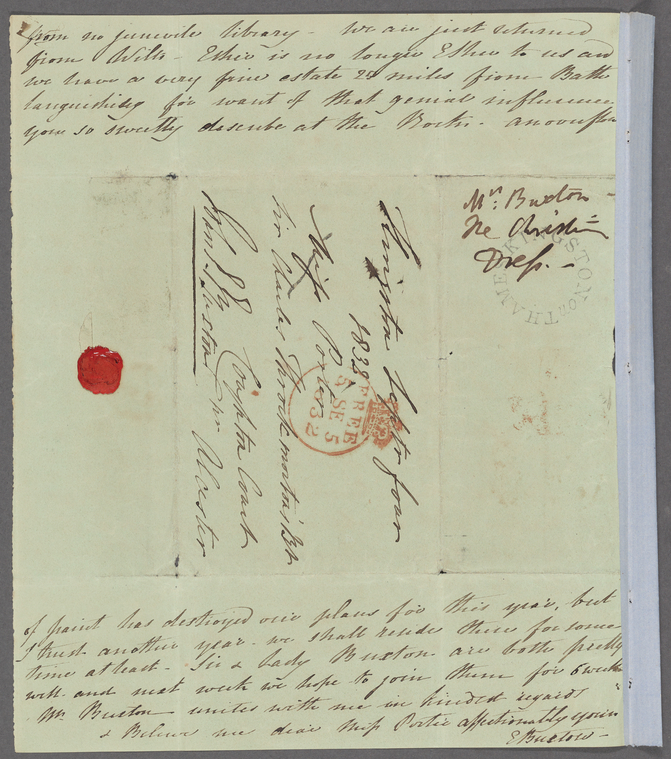 from no juvenile library - We are just returned
from Wilts - Esher is no longer Esher to us and
we have a very fine estate 20 miles from Bath
languishing for want of that genial influence
you so sweetly describe at the
Mrs: Buxton
Dress. -
KINGSTON on THAMES
Kingston Septr four
1832
Miss Porter
Sir Charles Throckmorton's Bt
Coughton Court
nr Alcester
FREE
5 SE 5
1832
of paint has destroyed our plans for this year, but
I trust another year - we shall reside there for some
time at least - Sir & Lady Buxton are both pretty
well - and next week we hope to join them for 6 weeks
Mr Buxton unites with me in kindest regards
& Believe me dear Miss Porter affectionately yours
E Buxton -